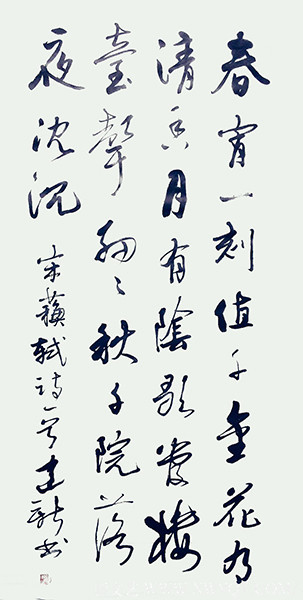 春宵一刻值千金花有
清香月有陰歌管樓
臺聲細々秋千院落
夜沈沈 宋蘇軾詩一首建新书